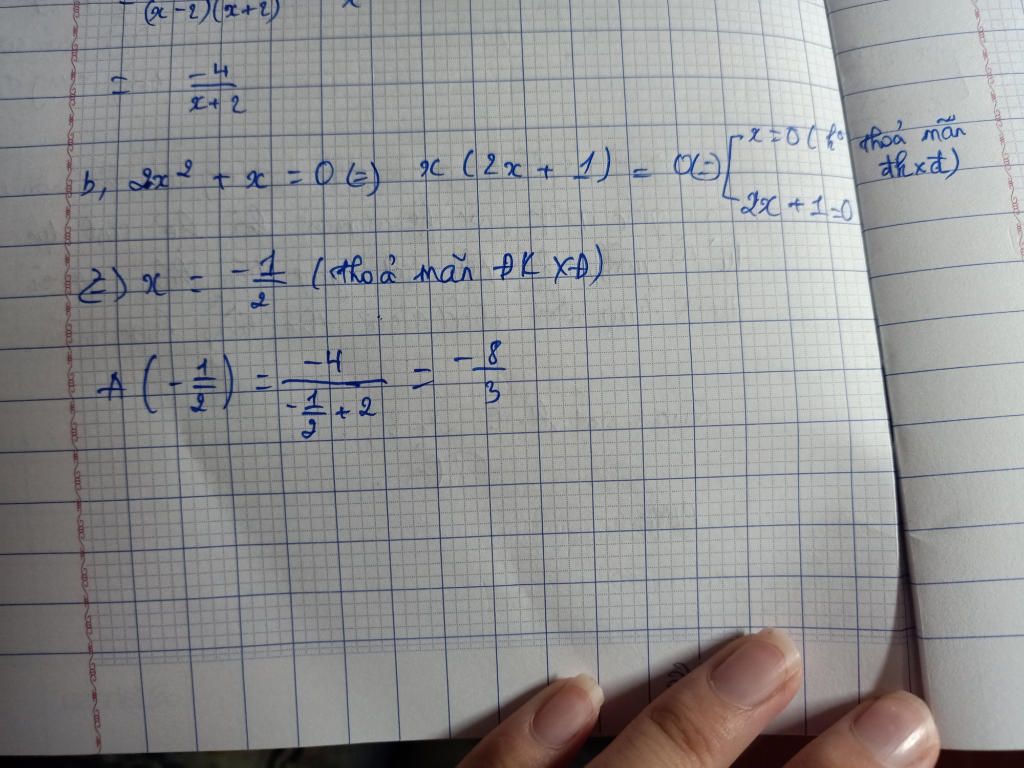 (x-2)(x+2) x
= -4/(x+2)
b, 2x² + x = 0 (=) x (2x + 1) = 0 (=) [ x = 0 ( thoả mãn đkxđ)
2x + 1 = 0
(=) x = -1/2 (thoả mãn ĐKXĐ)
A (-1/2) = -4/(-1/2 + 2) = -8/3